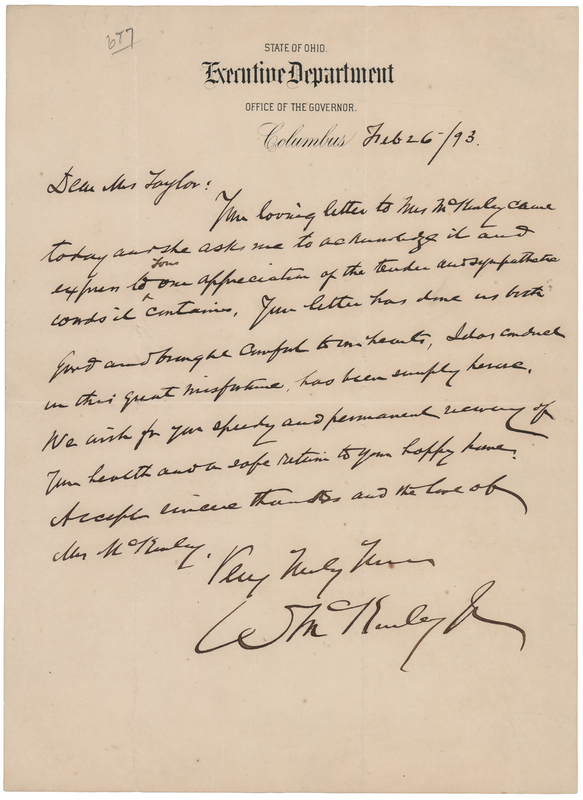 677
STATE OF OHIO.
Executive Department
OFFICE OF THE GOVERNOR.
Columbus Feb 26/93.
Dear Mrs Taylor:
Your loving letter to Mrs McKinley came
today and she asks me to acknowledge it and
express to you our appreciation of the tender and sympathetic
words it contains. Your letter has done us both
good and brought comfort to our hearts, Idas conduct
in this great misfortune, has been simply heroic.
We wish for your speedy and permanent recovery of
your health and a safe return to your happy home.
Accept sincere thanks and the love of
Mrs McKinley.
Very Truly Yours
Wm McKinley Jr